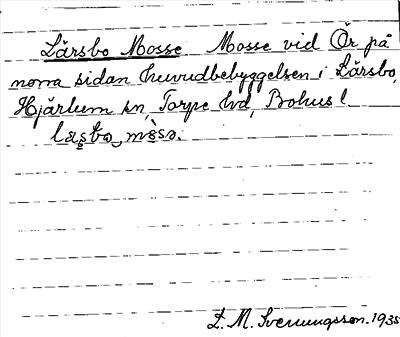 Lärsbo Mosse Mosse vid Ör på
norra sidan huvudbebyggelsen i Lärsbo,
Hjärtum sn, Torpe hd, Bohusl
L. M. Svenungsson. 1935